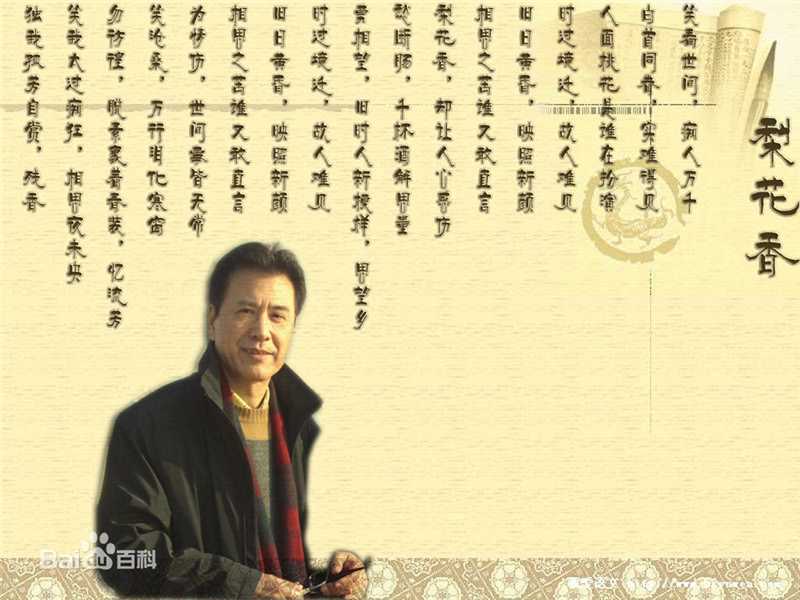 梨花香
笑看世间，痴人万千
白首同眷，实难得见
人面桃花是谁在扮演
时过境迁，故人难见
旧日黄昏，映照新颜
相思之苦谁又敢直言
梨花香，却让人心感伤
愁断肠，千杯酒解思量
莫相望，旧时人新模样，思望乡
时过境迁，故人难见
旧日黄昏，映照新颜
相思之苦谁又敢直言
为情伤，世间事皆无常
笑沧桑，万行泪化寒窗
勿彷徨，脱素裹着春装，忆流芳
笑我太过痴狂，相思夜未央
独我孤芳自赏，残香
Baidu百科